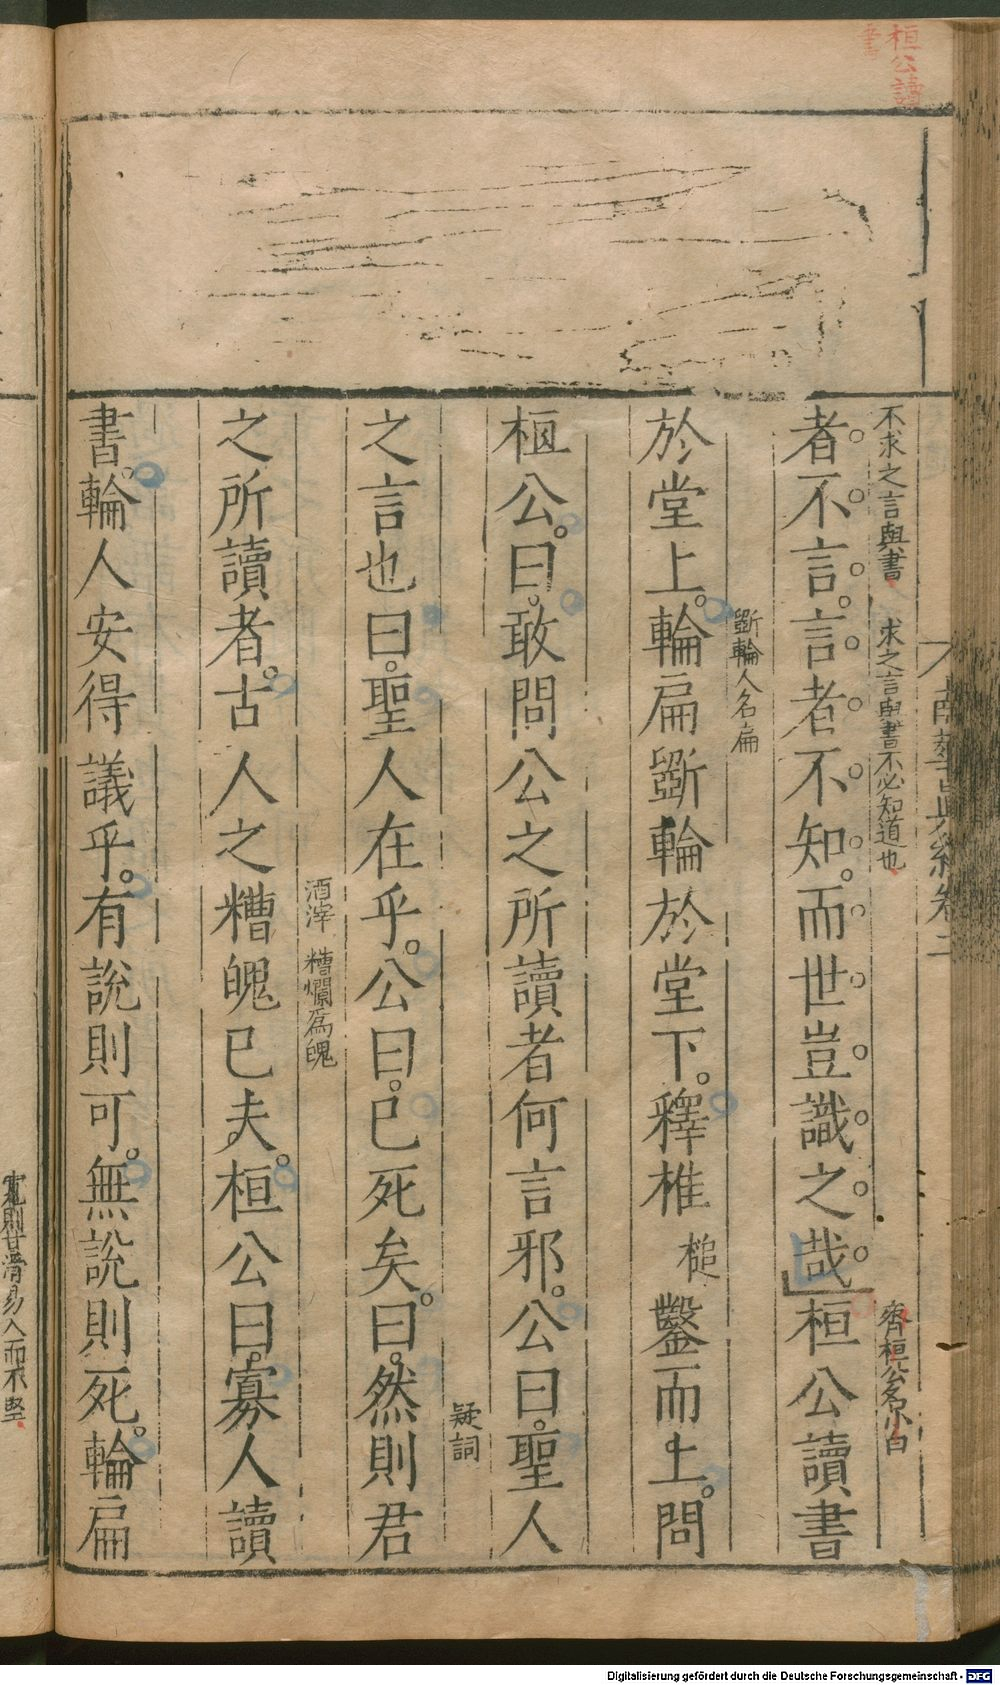 桓公讀
書
南華眞經卷二
不求之言與書 求之言與書不必知道也 齊桓公名小白
者不言言者不知而世豈識之哉桓公讀書
斲輪人名扁
於堂上輪扁斲輪於堂下釋椎槌鑿而上問
桓公曰敢問公之所讀者何言邪公曰聖人
疑詞
之言也曰聖人在乎公曰已死矣曰然則君
酒滓 糟爛爲魄
之所讀者古人之糟魄已夫桓公曰寡人讀
書輪人安得議乎有說則可無說則死輪扁
寬則甘滑易入而不堅
Digitalisierung gefördert durch die Deutsche Forschungsgemeinschaft - DFG